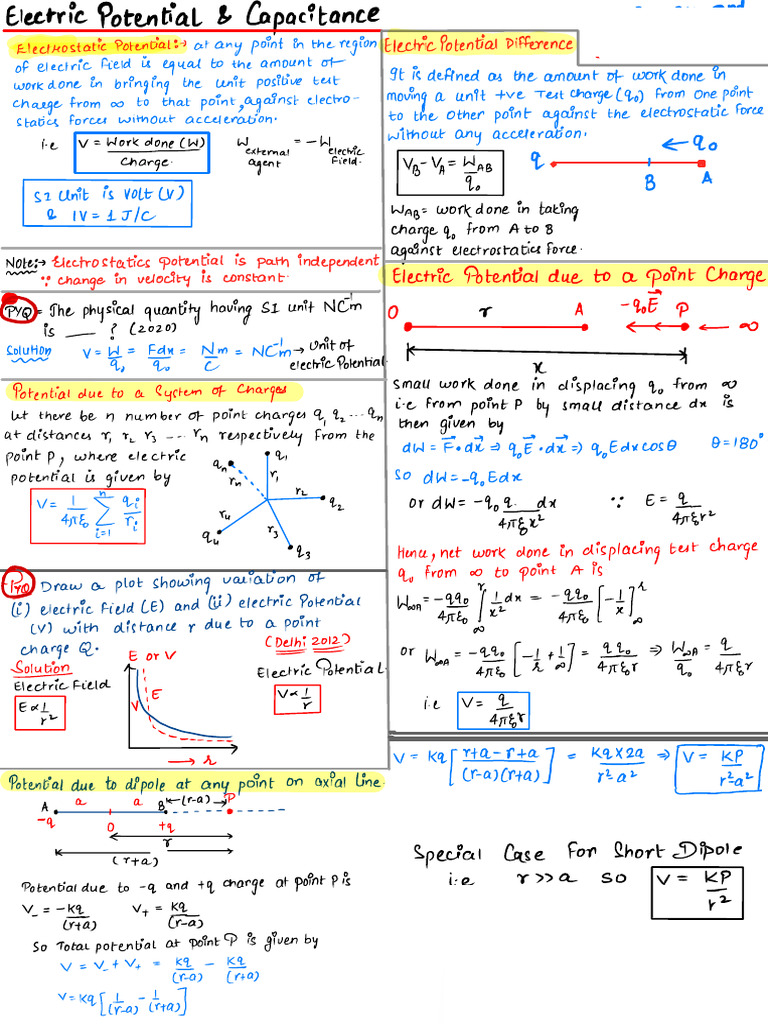 Electric Potential & Capacitance
Electrostatic Potential:→ at any point in the region
of electric field is equal to the amount of
work done in bringing the unit positive test
charge from ∞ to that point, against electro-
statics forces without acceleration.
i.e V = Work done (W) / Charge.
W external agent = -W electric field.
SI Unit is Volt (V)
& 1V = 1 J/C
Note:→ Electrostatics Potential is path independent
∵ change in velocity is constant.
PYQ = The physical quantity having SI unit NC⁻¹m
is ___ ? (2020)
Solution V = W/q₀ = Fdx/q₀ = Nm/C = NC⁻¹m → Unit of
electric Potential
Potential due to a System of Charges
Let there be n number of point charges q₁ q₂ --- qₙ
at distances r₁ r₂ r₃ --- rₙ respectively from the
point P, where electric
potential is given by
V = 1/4πξ₀ Σ i=1 n qᵢ/rᵢ
q₁ r₁ q₂ r₂ q₃ r₃ q₄ r₄ qₙ rₙ
PYQ Draw a plot showing variation of
(i) electric Field (E) and (ii) electric Potential
(V) with distance r due to a point
charge Q.
(Delhi 2012)
Solution
Electric Field
E ∝ 1/r²
E or V
V
E
→ r
Electric Potential.
V ∝ 1/r
Potential due to dipole at any point on axial Line.
A a a B (r-a) P
-q O +q
r
(r+a)
Potential due to -q and +q charge at point P is
V₋ = -Kq/(r+a) V₊ = Kq/(r-a)
So Total potential at point P is given by
V = V₋ + V₊ = Kq/(r-a) - Kq/(r+a)
V = Kq[1/(r-a) - 1/(r+a)]
Electric Potential Difference
It is defined as the amount of work done in
moving a unit +ve Test charge (q₀) from one point
to the other point against the electrostatic force
without any acceleration.
V_B - V_A = W_AB/q₀
q ← q₀
B A
W_AB = work done in taking
charge q₀ from A to B
against electrostatics force.
Electric Potential due to a Point Charge
O r A -q₀E⃗ P ← ∞
x
small work done in displacing q₀ from ∞
i.e from point P by small distance dx is
then given by
dW = F⃗·dx⃗ ⇒ q₀E⃗·dx⃗ ⇒ q₀Edxcosθ θ=180°
So dW = -q₀Edx
or dW = -q₀q/4πξ₀x² dx ∵ E = q/4πξ₀r²
Hence, net work done in displacing test charge
q₀ from ∞ to point A is
W∞A = -qq₀/4πξ₀ ∫∞^r 1/x² dx = -qq₀/4πξ₀ [-1/x]∞^r
or W∞A = -qq₀/4πξ₀ [-1/r + 1/∞] = qq₀/4πξ₀r ⇒ W∞A/q₀ = q/4πξ₀r
i.e V = q/4πξ₀r
V = Kq[(r+a-r+a)/(r-a)(r+a)] = Kq×2a/r²-a² ⇒ V = KP/r²-a²
Special Case For Short Dipole
i.e r>>a so V = KP/r²